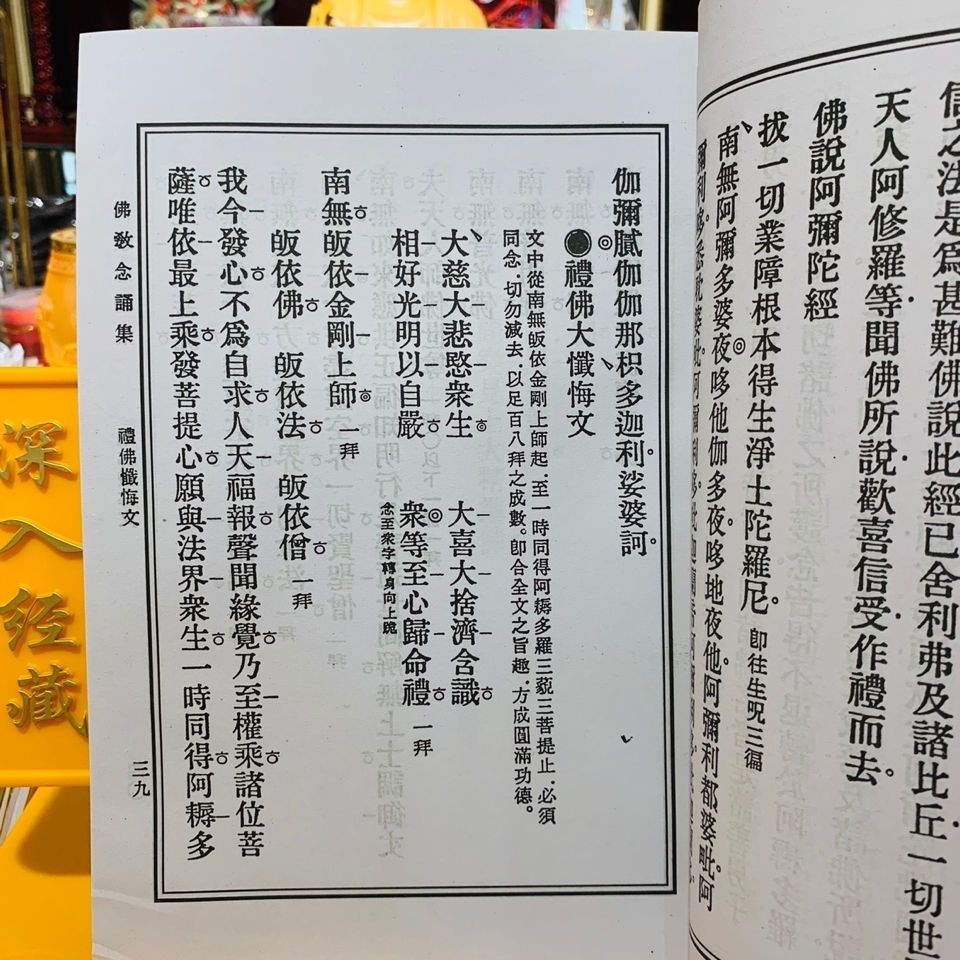 信之法是爲甚難佛說此經已舍利弗及諸比丘一切世
天人阿修羅等聞佛所說歡喜信受作禮而去。
佛說阿彌陀經
拔一切業障根本得生淨土陀羅尼 即往生呪三徧
南無阿彌多婆夜哆他伽多夜。哆地夜他阿彌利都婆毗。阿
彌利哆悉耽婆毗。阿彌利哆
伽彌膩伽伽那枳多迦利。娑婆訶。
●禮佛大懺悔文
文中從南無皈依金剛上師起。至一時同得阿耨多羅三藐三菩提止。必須
同念。切勿減去。以足百八拜之成數。卽合全文之旨趣。方成圓滿功德。
大慈大悲愍衆生 大喜大捨濟含識
相好光明以自嚴 衆等至心歸命禮 一拜
念至衆字轉身向上跪
南無皈依金剛上師 一拜
皈依佛 皈依法 皈依僧 一拜
我今發心不爲自求人天福報聲聞緣覺乃至權乘諸位菩
薩唯依最上乘發菩提心願與法界衆生一時同得阿耨多
佛敎念誦集 禮佛懺悔文 三九
深入经藏